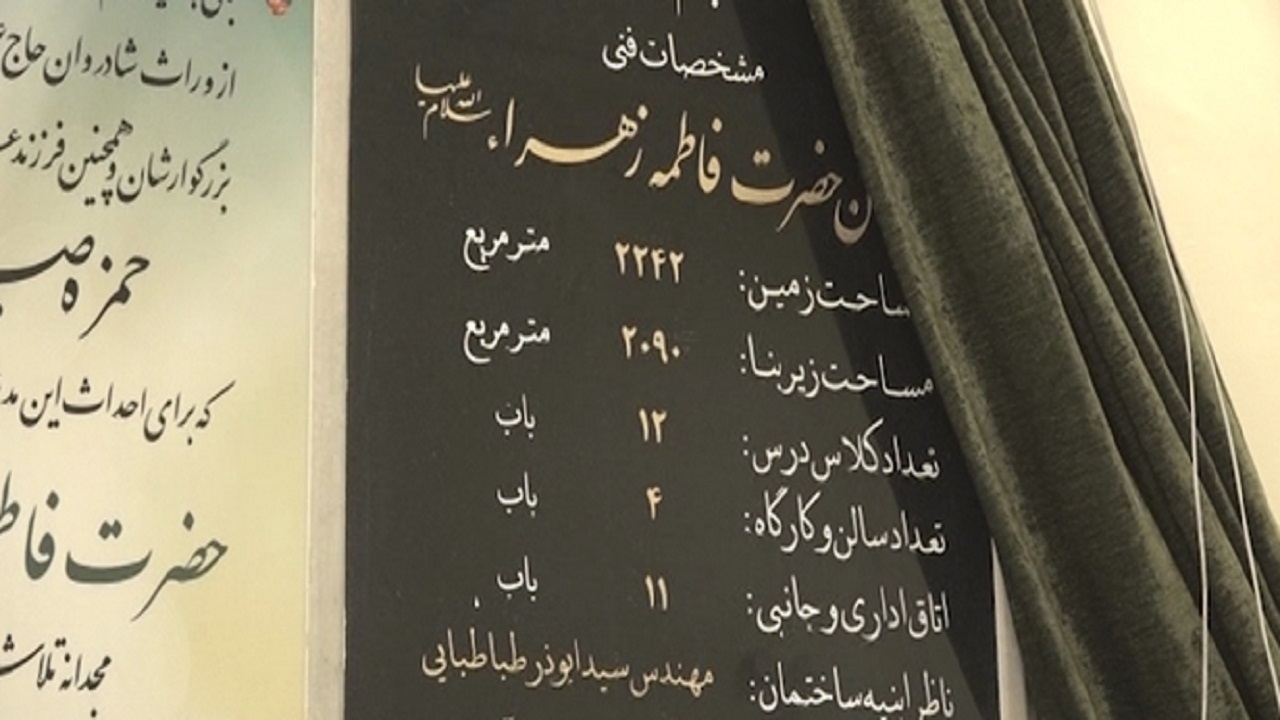 مشخصات فنی
حضرت فاطمه زهراء سلام الله علیها
مساحت زمین: ۲۲۴۲ متر مربع
مساحت زیربنا: ۲۰۹۰ متر مربع
تعداد کلاس درس: ۱۲ باب
تعداد سالن و کارگاه: ۴ باب
اتاق اداری و جانبی: ۱۱ باب
ناظر ابنیه ساختمان: مهندس سید ابوذر طباطبایی
از وراث شادروان حاج
بزرگوارشان و همچنین فرزند
حمزه
که برای احداث این
حضرت
مجدانه